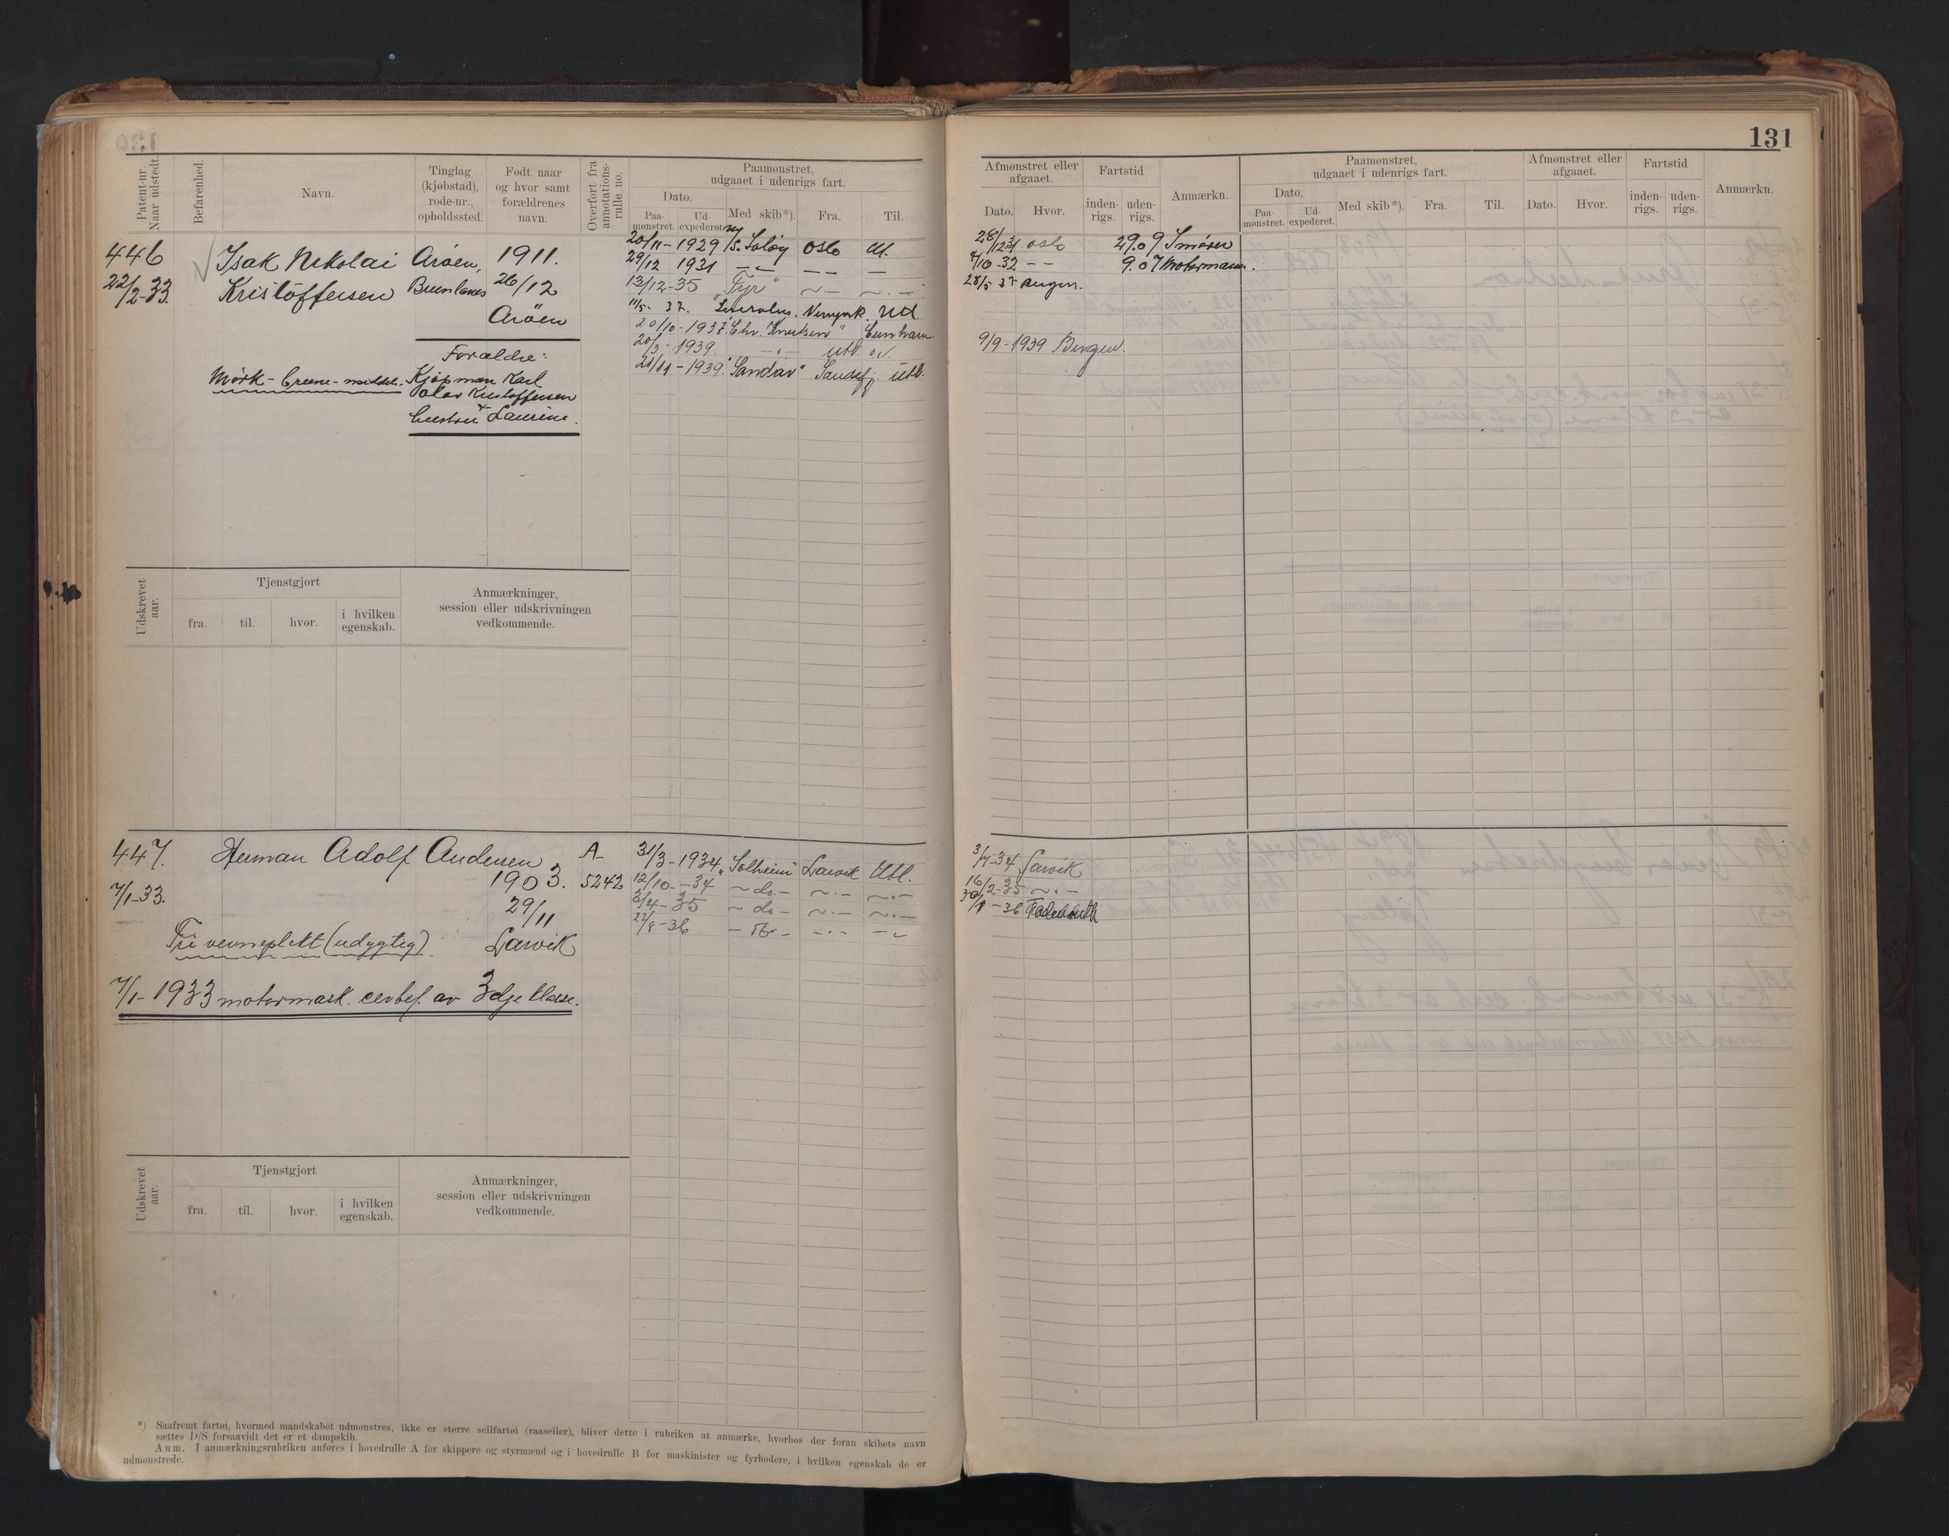 131
Patent-nr. Naar udstedt.
Befarenhed.
Navn.
Tinglag (kjøbstad), rode-nr., opholdssted.
Født naar og hvor samt forældrenes navn.
Overført fra annotations-rulle no.
Paamønstret, udgaaet i udenrigs fart.
Dato.
Paa-mønstret.
Ud-expederet.
Med skib*).
Fra.
Til.
Afmønstret eller afgaaet.
Dato.
Hvor.
Fartstid
inden-rigs.
uden-rigs.
Anmærkn.
Paamønstret, udgaaet i udenrigs fart.
Dato.
Paa-mønstret.
Ud-expederet.
Med skib*).
Fra.
Til.
Afmønstret eller afgaaet.
Dato.
Hvor.
Fartstid
inden-rigs.
uden-rigs.
Anmærkn.
446 Isak Nikolai Arøen, 1911.
22/2-33. Kristoffersen Brunlanes 26/12
Arøen
Forældre:
Kjøpman Karl
Olav Kristoffersen
Laurine.
20/11-1929 Oslo Ut.
29/12 1931
13/12-35 "Tyr"
11/5-37. Newyork. Ud
20/10-1937. "Chr. Knudsen"
20/3-1939. utl.
21/11-1939. "Sandar" Sandefj. Utl.
28/12 31 Oslo 29.09 Smører
4/10-32 9.07 Motormann.
28/5 37 Bergen.
9/9-1939 Bergen.
Udskrevet aar.
Tjenstgjort
fra.
til.
hvor.
i hvilken egenskab.
Anmærkninger, session eller udskrivningen vedkommende.
447. Herman Adolf Andersen A
7/1-33. 1903. 5242
29/11
Fri verneplikt (udygtig). Larvik
7/1-1933 motormask. certef. av 3dje klasse.
31/3-1934 "Solheim" Larvik Utl.
12/10-34 do
3/4-35 do
22/8-36 do
3/7-34 Larvik
16/2-35
Udskrevet aar.
Tjenstgjort
fra.
til.
hvor.
i hvilken egenskab.
Anmærkninger, session eller udskrivningen vedkommende.
*) Saafremt fartøi, hvormed mandskabet udmønstres, ikke er større seilfartøi (raaseiler), bliver dette i rubriken at anmærke, hvorhos der foran skibets navn
sættes D/S forsaavidt det er et dampskib.
Anm. I anmærkningsrubriken anføres i hovedrulle A for skippere og styrmænd og i hovedrulle B for maskinister og fyrbødere, i hvilken egenskab de er
udmønstrede.